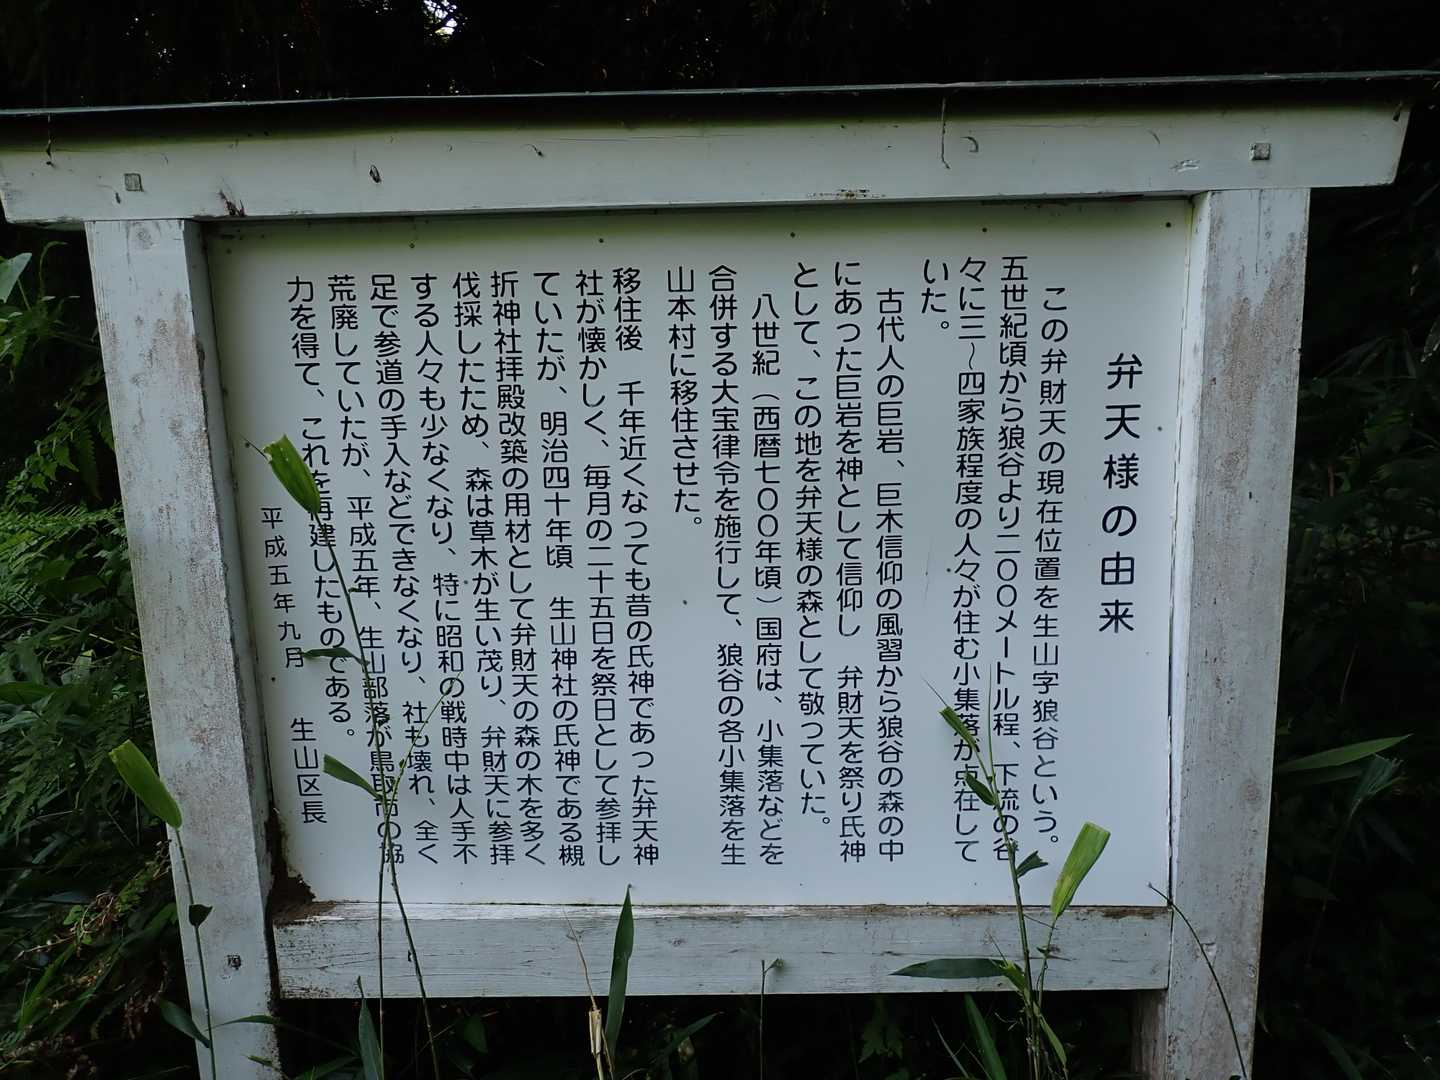 弁天様の由来
この弁財天の現在位置を生山字狼谷という。
五世紀頃から狼谷より二〇〇メートル程、下流の谷
々に三～四家族程度の人々が住む小集落が点在して
いた。
古代人の巨岩、巨木信仰の風習から狼谷の森の中
にあった巨岩を神として信仰し　弁財天を祭り氏神
として、この地を弁天様の森として敬っていた。
八世紀（西暦七〇〇年頃）国府は、小集落などを
合併する大宝律令を施行して、狼谷の各小集落を生
山本村に移住させた。
移住後　千年近くなっても昔の氏神であった弁天神
社が懐かしく、毎月の二十五日を祭日として参拝し
ていたが、明治四十年頃　生山神社の氏神である槻
折神社拝殿改築の用材として弁財天の森の木を多く
伐採したため、森は草木が生い茂り、弁財天に参拝
する人々も少なくなり、特に昭和の戦時中は人手不
足で参道の手入などできなくなり、社も壊れ、全く
荒廃していたが、平成五年、生山部落が鳥取市の協
力を得て、これを再建したものである。
平成五年九月　生山区長